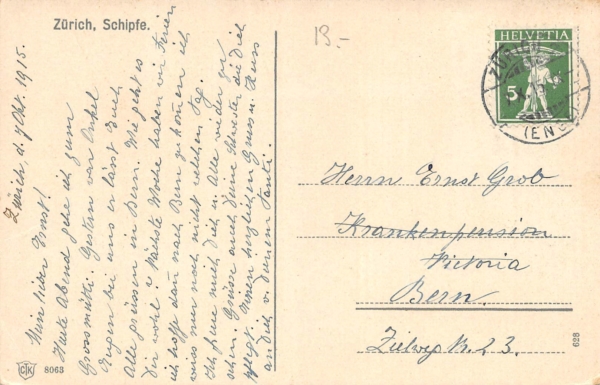 Zürich, Schipfe.
Zürich, d. 7 Okt. 1915.
Mein lieber Ernst!
Heute Abend gehe ich zum
Grossmütti. Gestern war Onkel
Eugen bei uns er lässt Euch
Alle grüssen in Bern. Wie geht es
Dir wohl? Nächste Woche haben wir Ferien
ich hoffe dann nach Bern zu kommen ich
weiss nur noch nicht welchen Tag.
Ich freue mich Dich u. Alle wieder zu
sehen. Grüsse auch Deine Schwester die Dich
pflegt. Einen herzlichen Gruss u. Kuss
an Dich v. Deiner Tante.
CK 8063
13.-
HELVETIA
5
ZÜRICH
(ENGE)
Herrn Ernst Grob
Krankenpension
Victoria
Bern.
Zielweg N. 23.
628